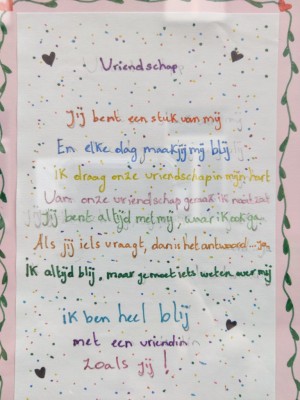 Vriendschap
Jij bent een stuk van mij
En elke dag maak jij mij blij
Ik draag onze vriendschap in mijn hart
Van onze vriendschap genoeg ik nooit zat
Jij bent altijd met mij, waar ik ook ga
Als jij iets vraagt, dan is het antwoord .... ja
Ik altijd blij, maar ge moet iets weten over mij
ik ben heel blij
met een vriendin
zoals jij!